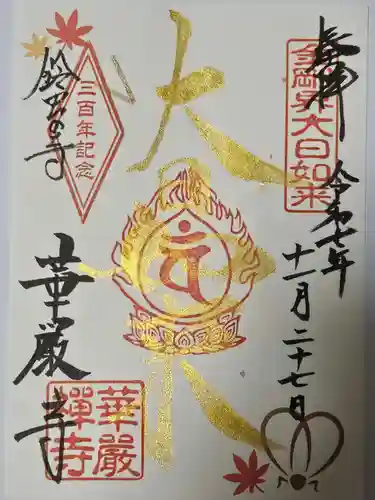 奉拝
金剛界大日如来
令和七年
十一月二十七日
大
三百年記念
鈴虫寺
華厳寺
華嚴
禪寺